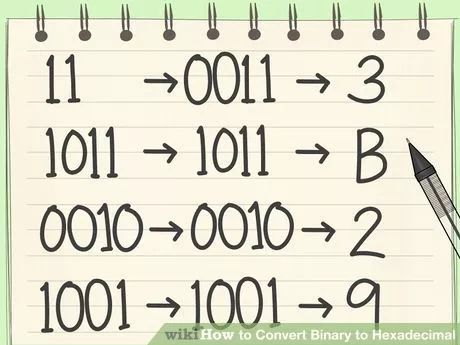 11 → 0011 → 3
1011 → 1011 → B
0010 → 0010 → 2
1001 → 1001 → 9
wikiHow to Convert Binary to Hexadecimal